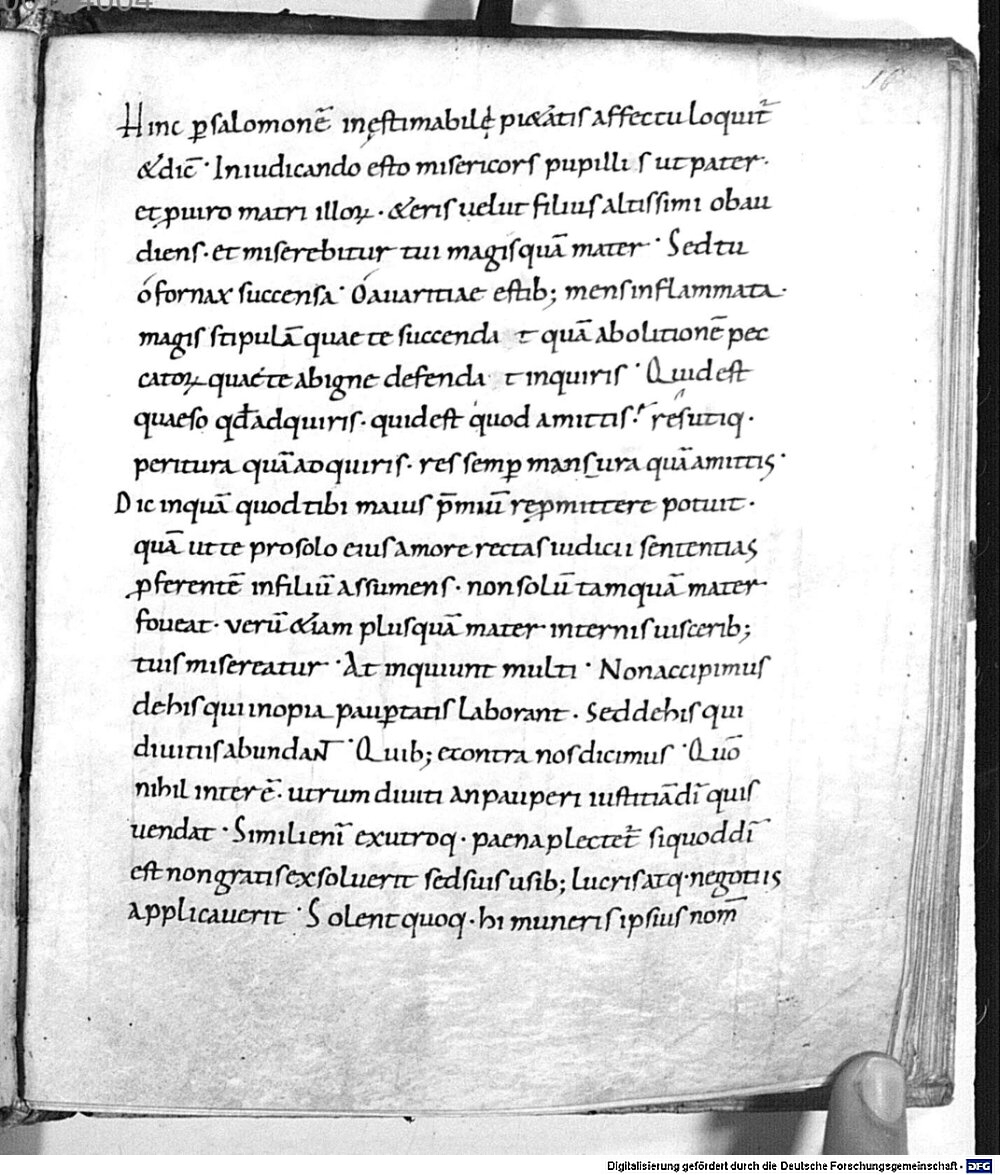 16
Hinc ꝑsalomonē inęstimabilę pi&atis affectu loquit̄
&dic̄ · Iniudicando esto misericors pupillis ut pater ·
et ꝓ uiro matri illoꝝ · & eris uelut filius altissimi obau
diens · et miserebitur tui magisquā mater · Sed tu
ó fornax succensa · O auaritiae estib; mens inflammata ·
magis stipulā quae te succendat quā abolitionē pec
catoꝝ quae te abigne defendat inquiris · Quid est
quaeso qđ adquiris · quid est quod amittis · res utiq ·
peritura quā adquiris · res semꝑ mansura quā amittis ·
Dic inquā quod tibi maius p̄miū reꝓmittere potuit ·
quā ut te pro solo eius amore rectas iudicii sententias
ꝓferentē infiliū assumens · non solū tamquā mater
foueat · verū &iam plusquā mater internis uiscerib;
tuis misereatur · At inquiunt multi · Non accipimus
dehis qui inopia pauꝑtatis laborant · Sed dehis qui
diuitiis abundant · Quib; econtra nos dicimus · Quō
nihil interē · utrum diuiti an pauperi iustitiā dī quis
uendat · Simili enī ex utroq · paena plectet̄ si quod dī
est non gratis exsoluerit sed suis usib; lucris atq · negotiis
applicauerit · Solent quoq · hi muneris ipsius nom̄
Digitalisierung gefördert durch die Deutsche Forschungsgemeinschaft - DFG